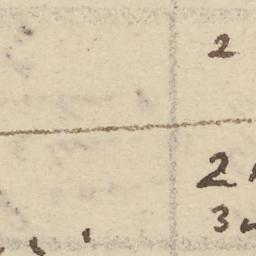 2
2
3